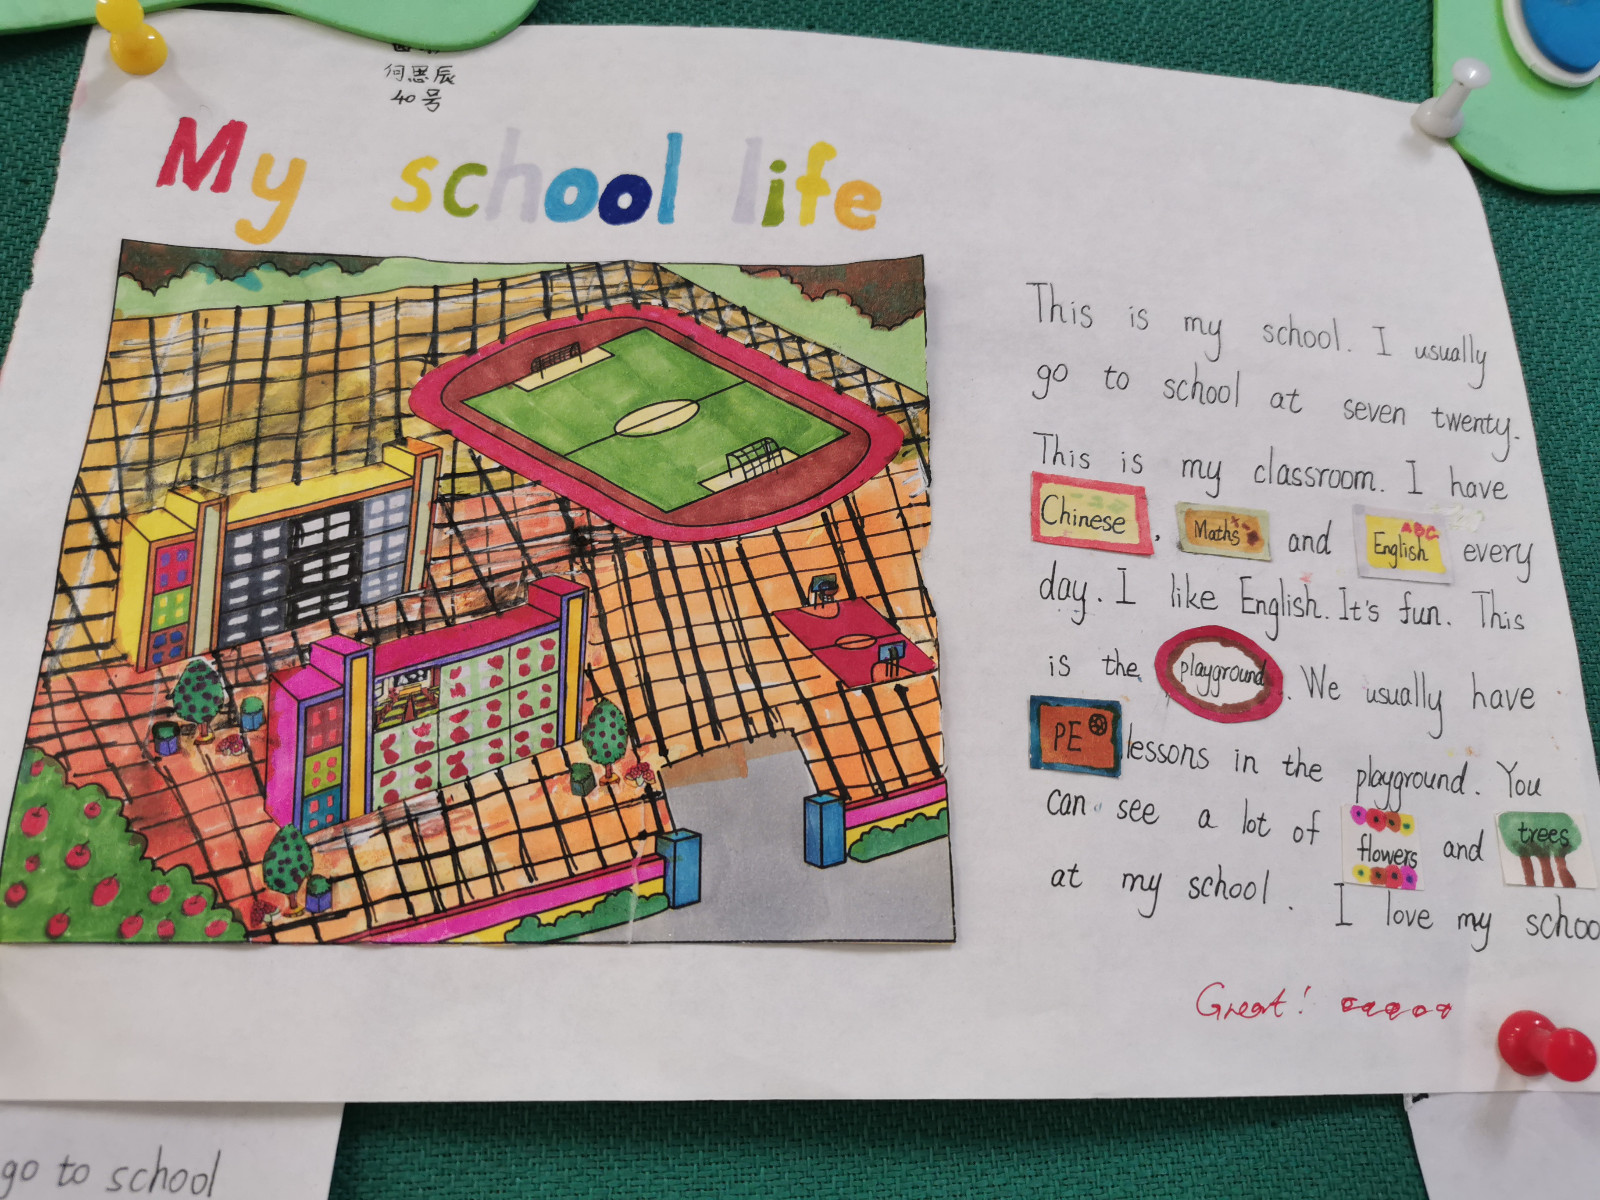 何思辰
40号
My school life
This is my school. I usually
go to school at seven twenty.
This is my classroom. I have
Chinese, Maths and English ABC every
day. I like English. It's fun. This
is the playground. We usually have
PE lessons in the playground. You
can see a lot of flowers and trees
at my school. I love my schoo
Great!
go to school